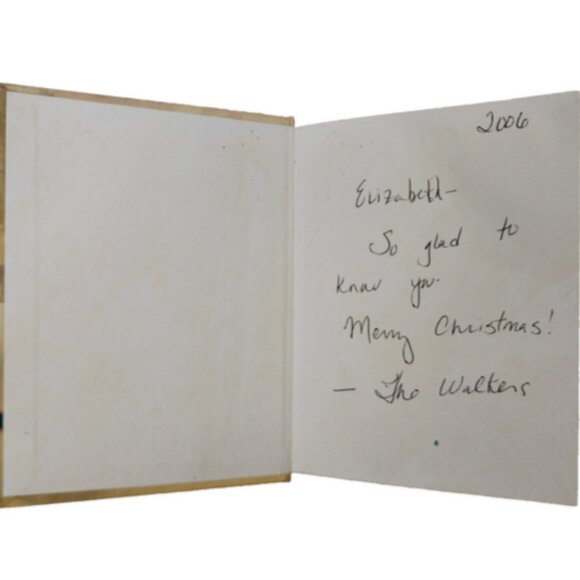 2006
Elizabeth-
So glad to
know you.
Merry Christmas!
— The Walkers